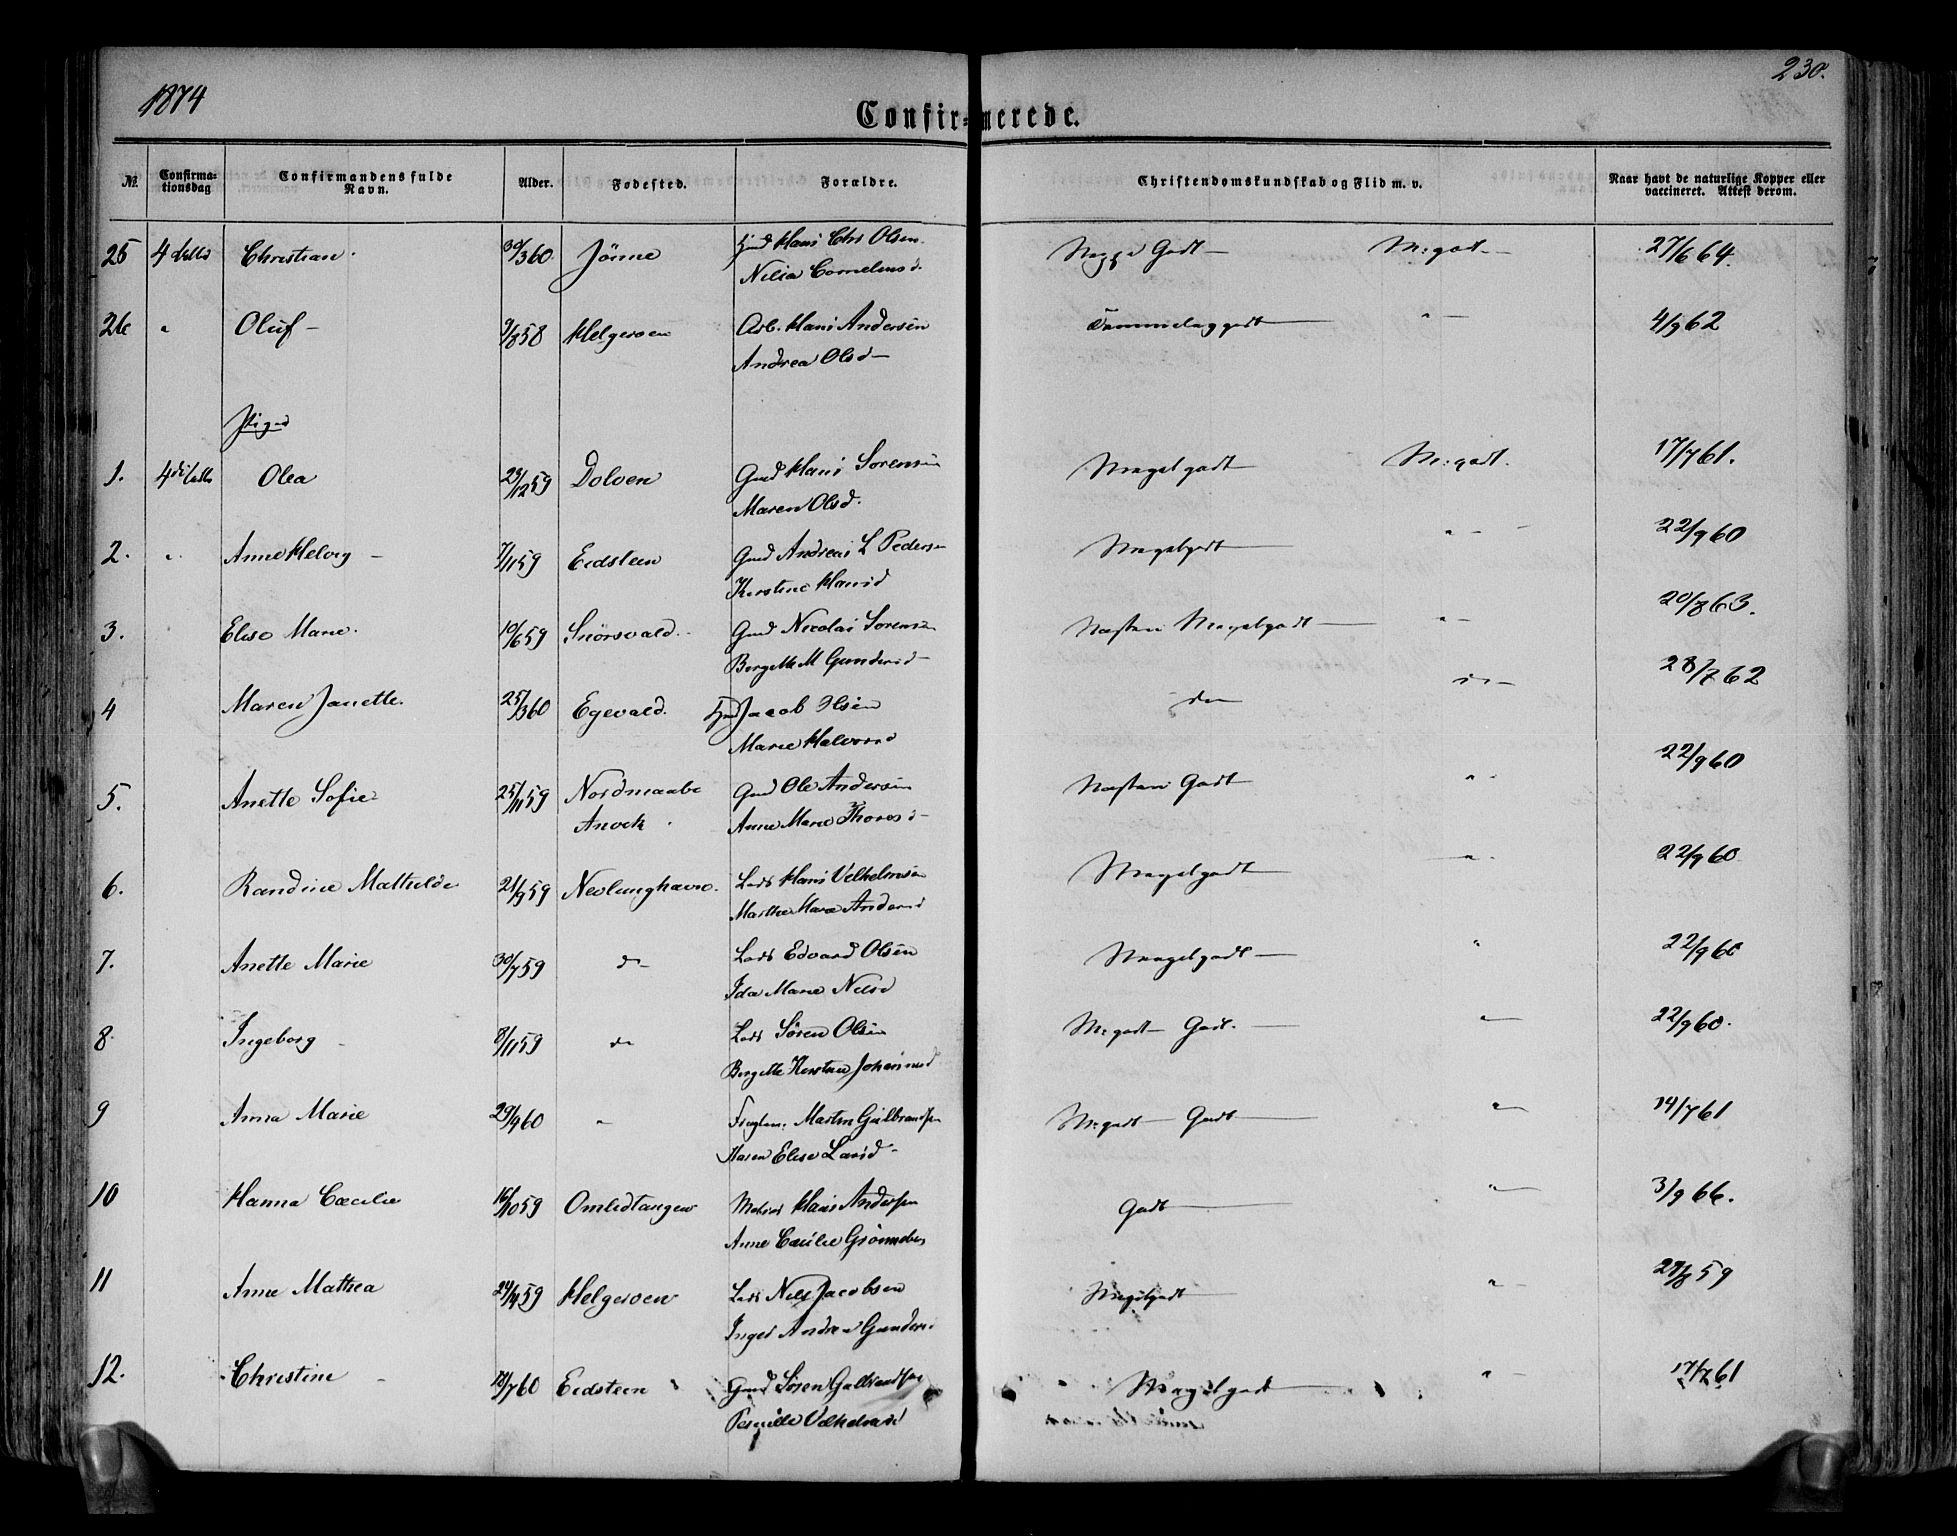 1874
230.
Confirmerede.
№ Confirmationsdag Confirmandens fulde Navn. Alder. Fødested. Forældre. Christendomskundskab og Flid m. v. Naar havt de naturlige Kopper eller vaccineret. Attest derom.
25 4 Christian. 30/3 60 Jönne Hans Chr Olsen. Godt M: godt 27/6 64.
Cornelius d.
26 " Oluf 9/8 58 Helgeroen Arb. Hans Andersen " 4/9 62
Andrea Olsd
Piger
1. 4 Olea 23/12 59 Dolven Gmd Hans Sorensen Megetgodt M: godt. 17/7 61.
Maren Olsd.
2. " Anne Helvig 7/11 59 Eidsteen Gmd Andreas L Pedersen Megetgodt " 22/9 60
Kirstine Hansd
3. Elise Marie. 10/6 59 Gmd Nicolai Sorensen Næsten Megetgodt " 20/8 63.
Borgette M Gundersd
4 Maren Janette. 25/3 60 Egevald. Jacob Olsen do 28/7 62
Marie Halvorsd
5. Anette Sofie 25/11 59 Gmd Ole Andersen Næsten Godt " 22/9 60
Anne Marie Thoresd
6. Randine Mathilde 21/9 59 Nevlunghavn. Lods Hans Velhelmsen Megetgodt " 22/9 60
Marthe Marie Andersd
7. Anette Marie 30/7 59 do Lods Edvard Olsen Megetgodt " 22/9 60
Ida Marie Nilsd
8. Ingeborg 8/11 59 do Lods Sören Olsen M: godt Godt. " 22/9 60.
Borgette Kirstine Johannesd
9 Anna Marie 29/9 60 " Martin Gulbrandsen M: godt Godt " 14/7 61
Karen Elise Larsd
10 Hanna Cæcilie 16/10 59 Omlidtangen Hans Andersen Godt " 3/9 66.
Anne Cæcilie
11 Anne Mathea 24/4 59 Helgeroen Lods Nils Jacobsen Megetgodt " 28/8 59
Inger Andrea Gunders.
12. Christine 18/7 60 Eidsteen Gmd Sören Gulbrandsen Megetgodt " 17/7 61
Pernille Velhelmsd